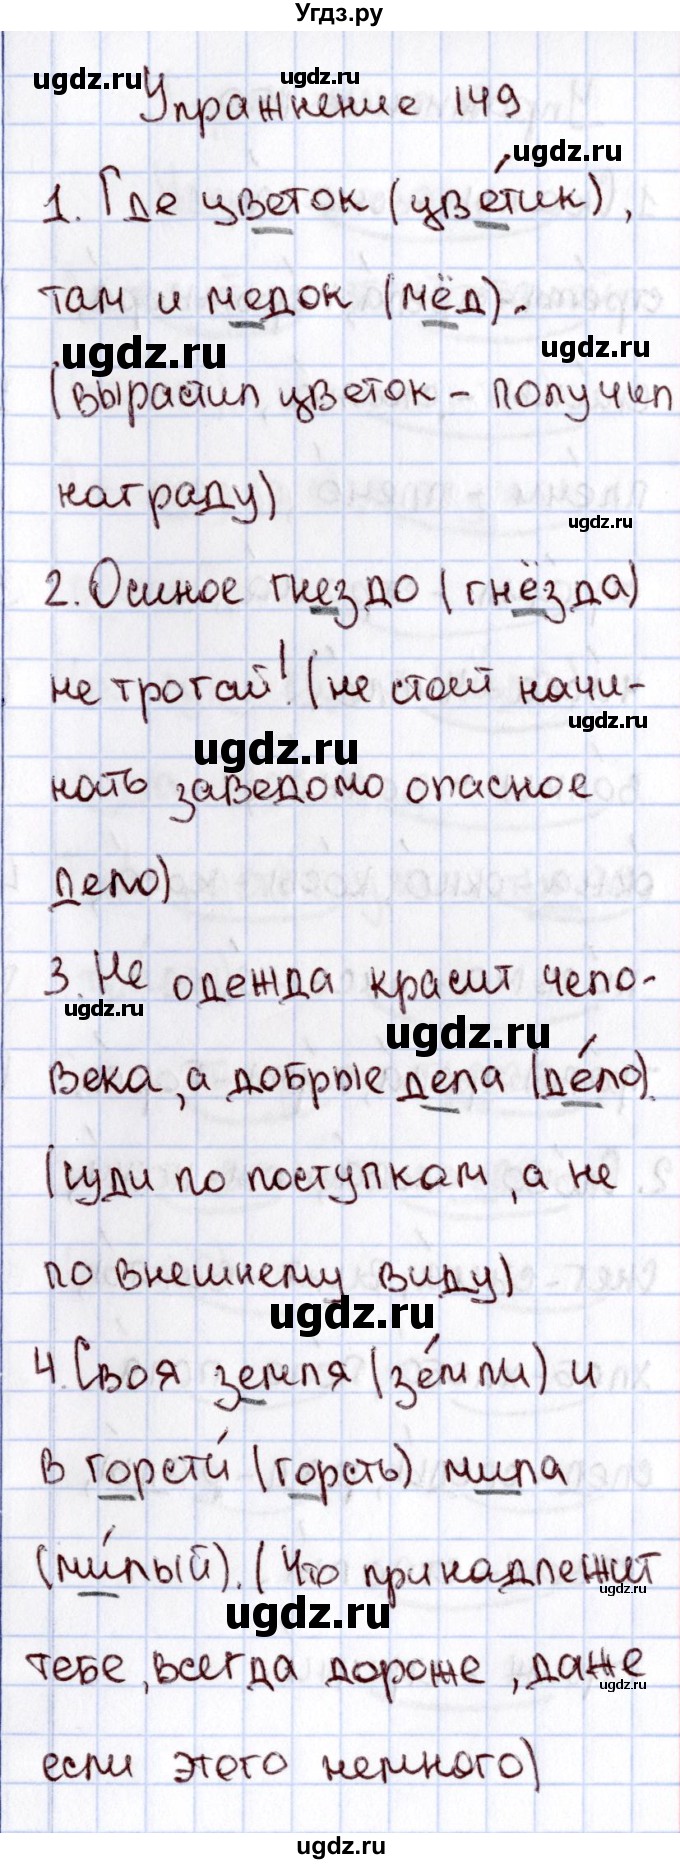 Угдз.ру
ugdz.ru
ugdz.ru
Упражнение 149
ugdz.ru
1. Где цветок (цве́тик),
там и медок (мёд).
ugdz.ru
ugdz.ru
(вырастил цветок - получил
награду)
ugdz.ru
2. Осиное гнездо (гнёзда)
не трогай! (не стоит начи-
ugdz.ru
ugdz.ru
нать заведомо опасное
дело)
3. Не одежда красит чело-
ugdz.ru
ugdz.ru
века, а добрые дела (де́ло).
(суди по поступкам, а не
по внешнему виду)
ugdz.ru
4. Своя земля (зе́мли) и
в горсти́ (горсть) мила
(ми́лый). (Что принадлежит
ugdz.ru
ugdz.ru
тебе, всегда дороже, даже
ugdz.ru
если этого немного)
ugdz.ru